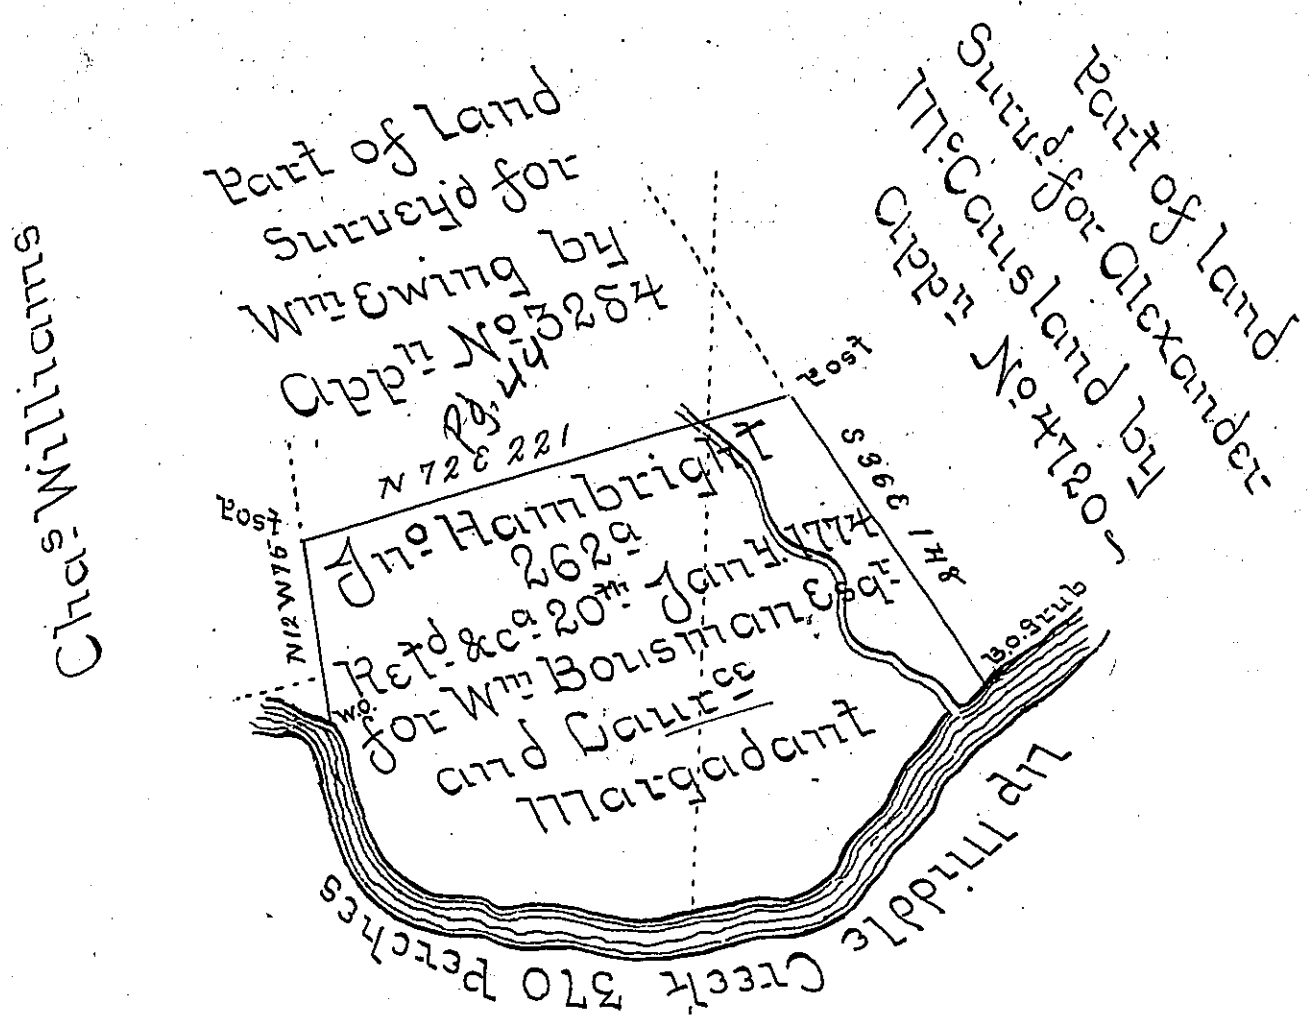 Part of Land
Survey'd for
Wm Ewing by
Appn No 3284
Pg. 44
Part of Land
Surv.d for Alexander
McCausland by
Appn No 4720
Chas Williams
Post
Post
N 72 E 221
S 36 E 148
N12W76
Jno Hambright
262a
Retd &ca 20th Jany 1774
for Wm Bousman Esqr
and Laurce
Margadant
W.O.
B.O. Grub
Up Middle
Creek 370 Perches